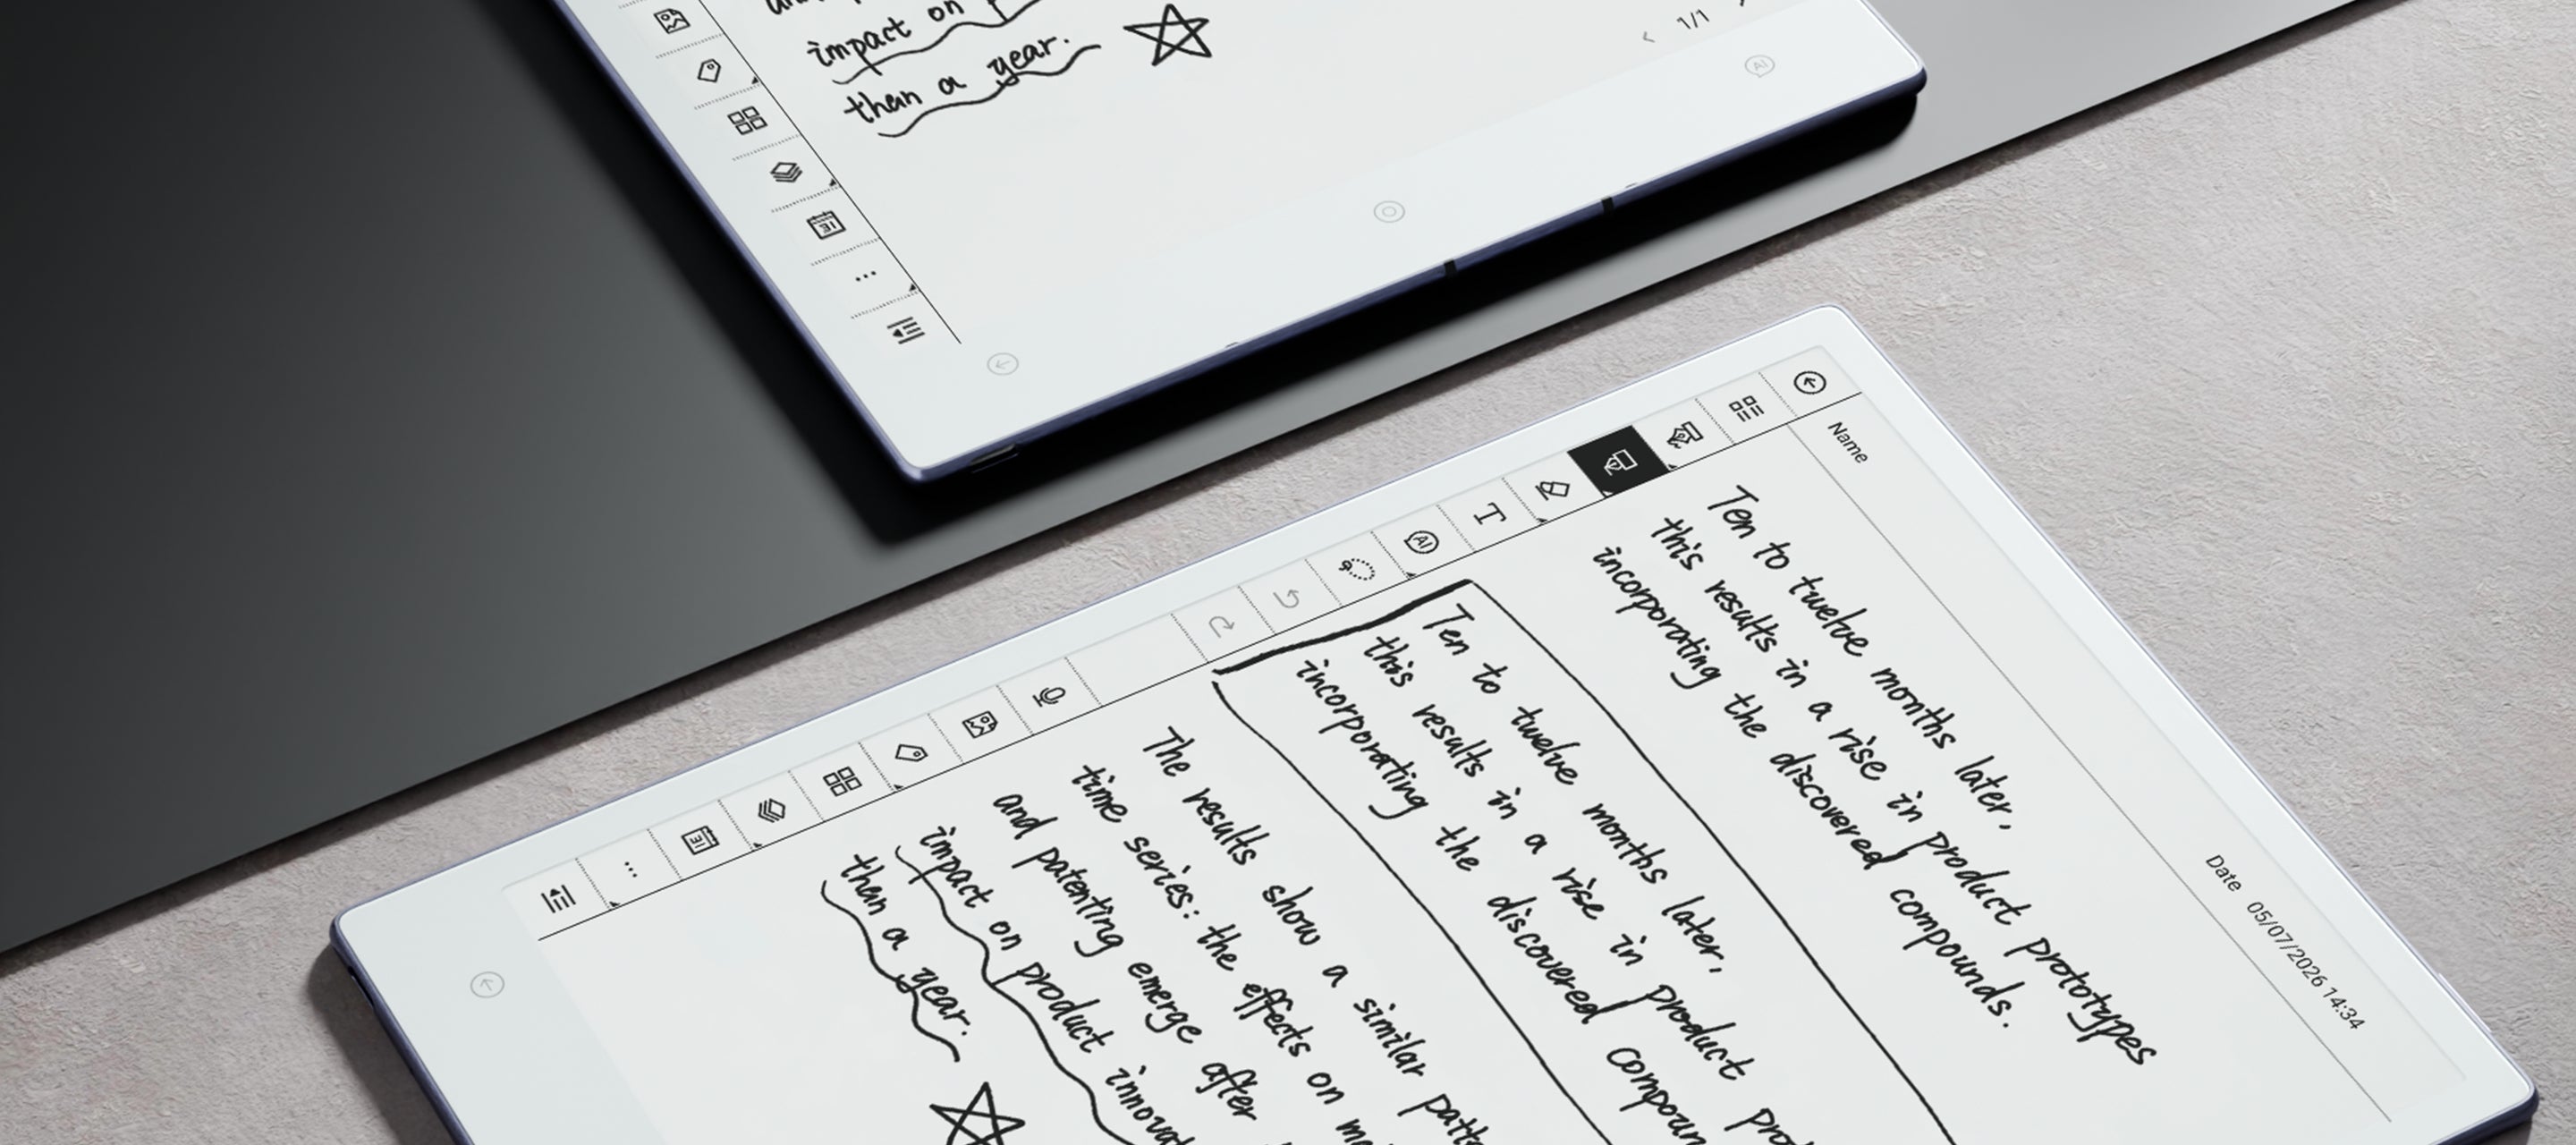 impact on
than a year.
1/1
AI
31
Name
Date 05/07/2026 14:34
T
AI
31
Ten to twelve months later,
this results in a rise in product prototypes
incorporating the discovered compounds.
Ten to twelve months later,
this results in a rise in product
incorporating the discovered
The results show a similar
time series: the effects on
and patenting emerge after
impact on product
than a year.